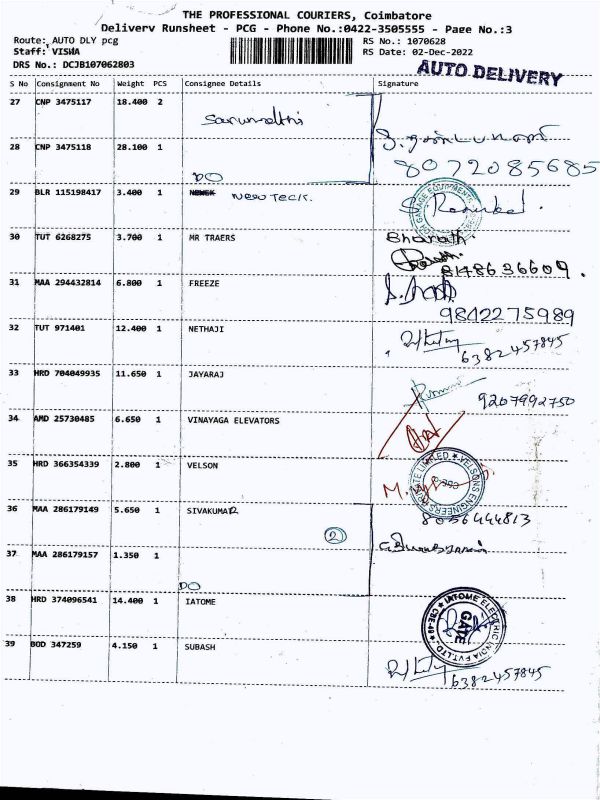 THE PROFESSIONAL COURIERS, Coimbatore
Delivery Runsheet - PCG - Phone No.:0422-3505555 - Page No.:3
Route: AUTO DLY pcg RS No.: 1070628
Staff: VISHA RS Date: 02-Dec-2022
DRS No.: DCJB107062803 AUTO DELIVERY
S No Consignment No Weight PCS Consignee Details Signature
27 CNP 3475117 18.400 2
28 CNP 3475118 28.100 1
8072085685
DO
29 BLR 115198417 3.400 1 New Teck.
30 TUT 6268275 3.700 1 MR TRAERS Bharath.
8148636609.
31 MAA 294432814 6.800 1 FREEZE
9842275989
32 TUT 971401 12.400 1 NETHAJI
6382457845
33 HRD 704049935 11.650 1 JAYARAJ
9207992750
34 AMD 25730485 6.650 1 VINAYAGA ELEVATORS
35 HRD 366354339 2.800 1 VELSON
36 MAA 286179149 5.650 1 SIVAKUMAR
8056444813
2
37 MAA 286179157 1.350 1
DO
38 HRD 374096541 14.400 1 IATOME
GATE
39 BOD 347259 4.150 1 SUBASH
6382457845